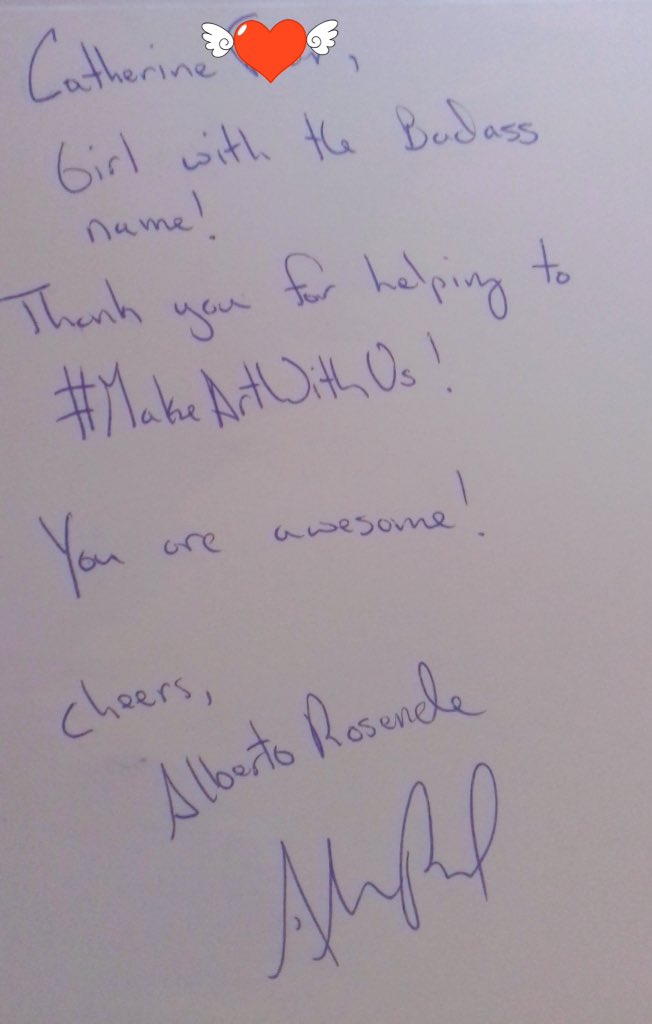 Catherine ,
Girl with the Badass
name!
Thank you for helping to
#MakeArtWithUs!
You are awesome!
Cheers,
Alberto Rosende